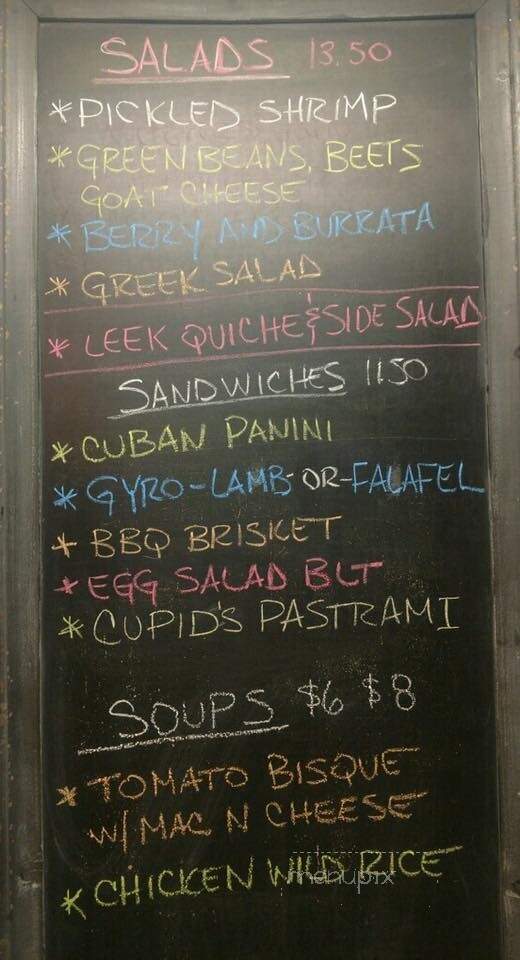 SALADS 13.50
*PICKLED SHRIMP
*GREEN BEANS, BEETS
GOAT CHEESE
*BERRY AND BURRATA
*GREEK SALAD
*LEEK QUICHE & SIDE SALAD
SANDWICHES 11.50
*CUBAN PANINI
*GYRO-LAMB-OR-FALAFEL
*BBQ BRISKET
*EGG SALAD BLT
*CUPID'S PASTRAMI
SOUPS $6 $8
*TOMATO BISQUE
W/ MAC N CHEESE
*CHICKEN WILD RICE
menupix